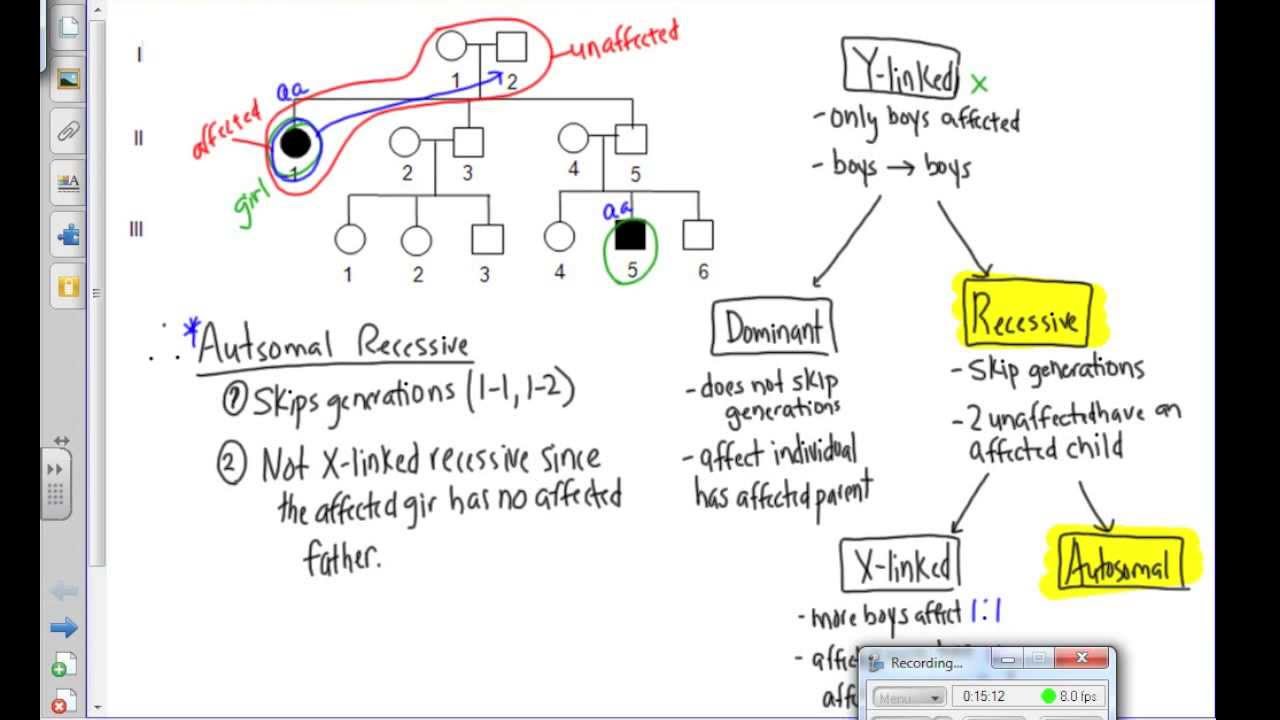 I
1
2
unaffected
aa
affected
II
1
2
3
4
5
girl
aa
III
1
2
3
4
5
6
∴ *Autsomal Recessive
① Skips generations (1-1, 1-2)
② Not X-linked recessive since
the affected gir has no affected
father.
Y-linked x
- only boys affected
- boys → boys
Dominant
- does not skip
generations
- affect individual
has affected parent
Recessive
- Skip generations
- 2 unaffected have an
affected child
X-linked
- more boys affect 1:1
Autosomal
Recording...
Menu
0:15:12
8.0 fps